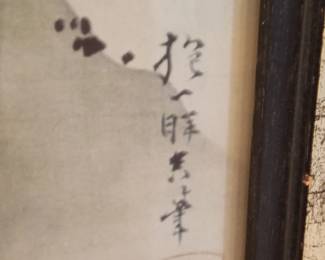 抱一暉真筆